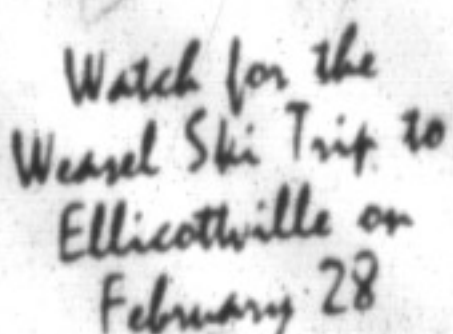 Watch for the
Weasel Ski Trip to
Ellicottville on
February 28